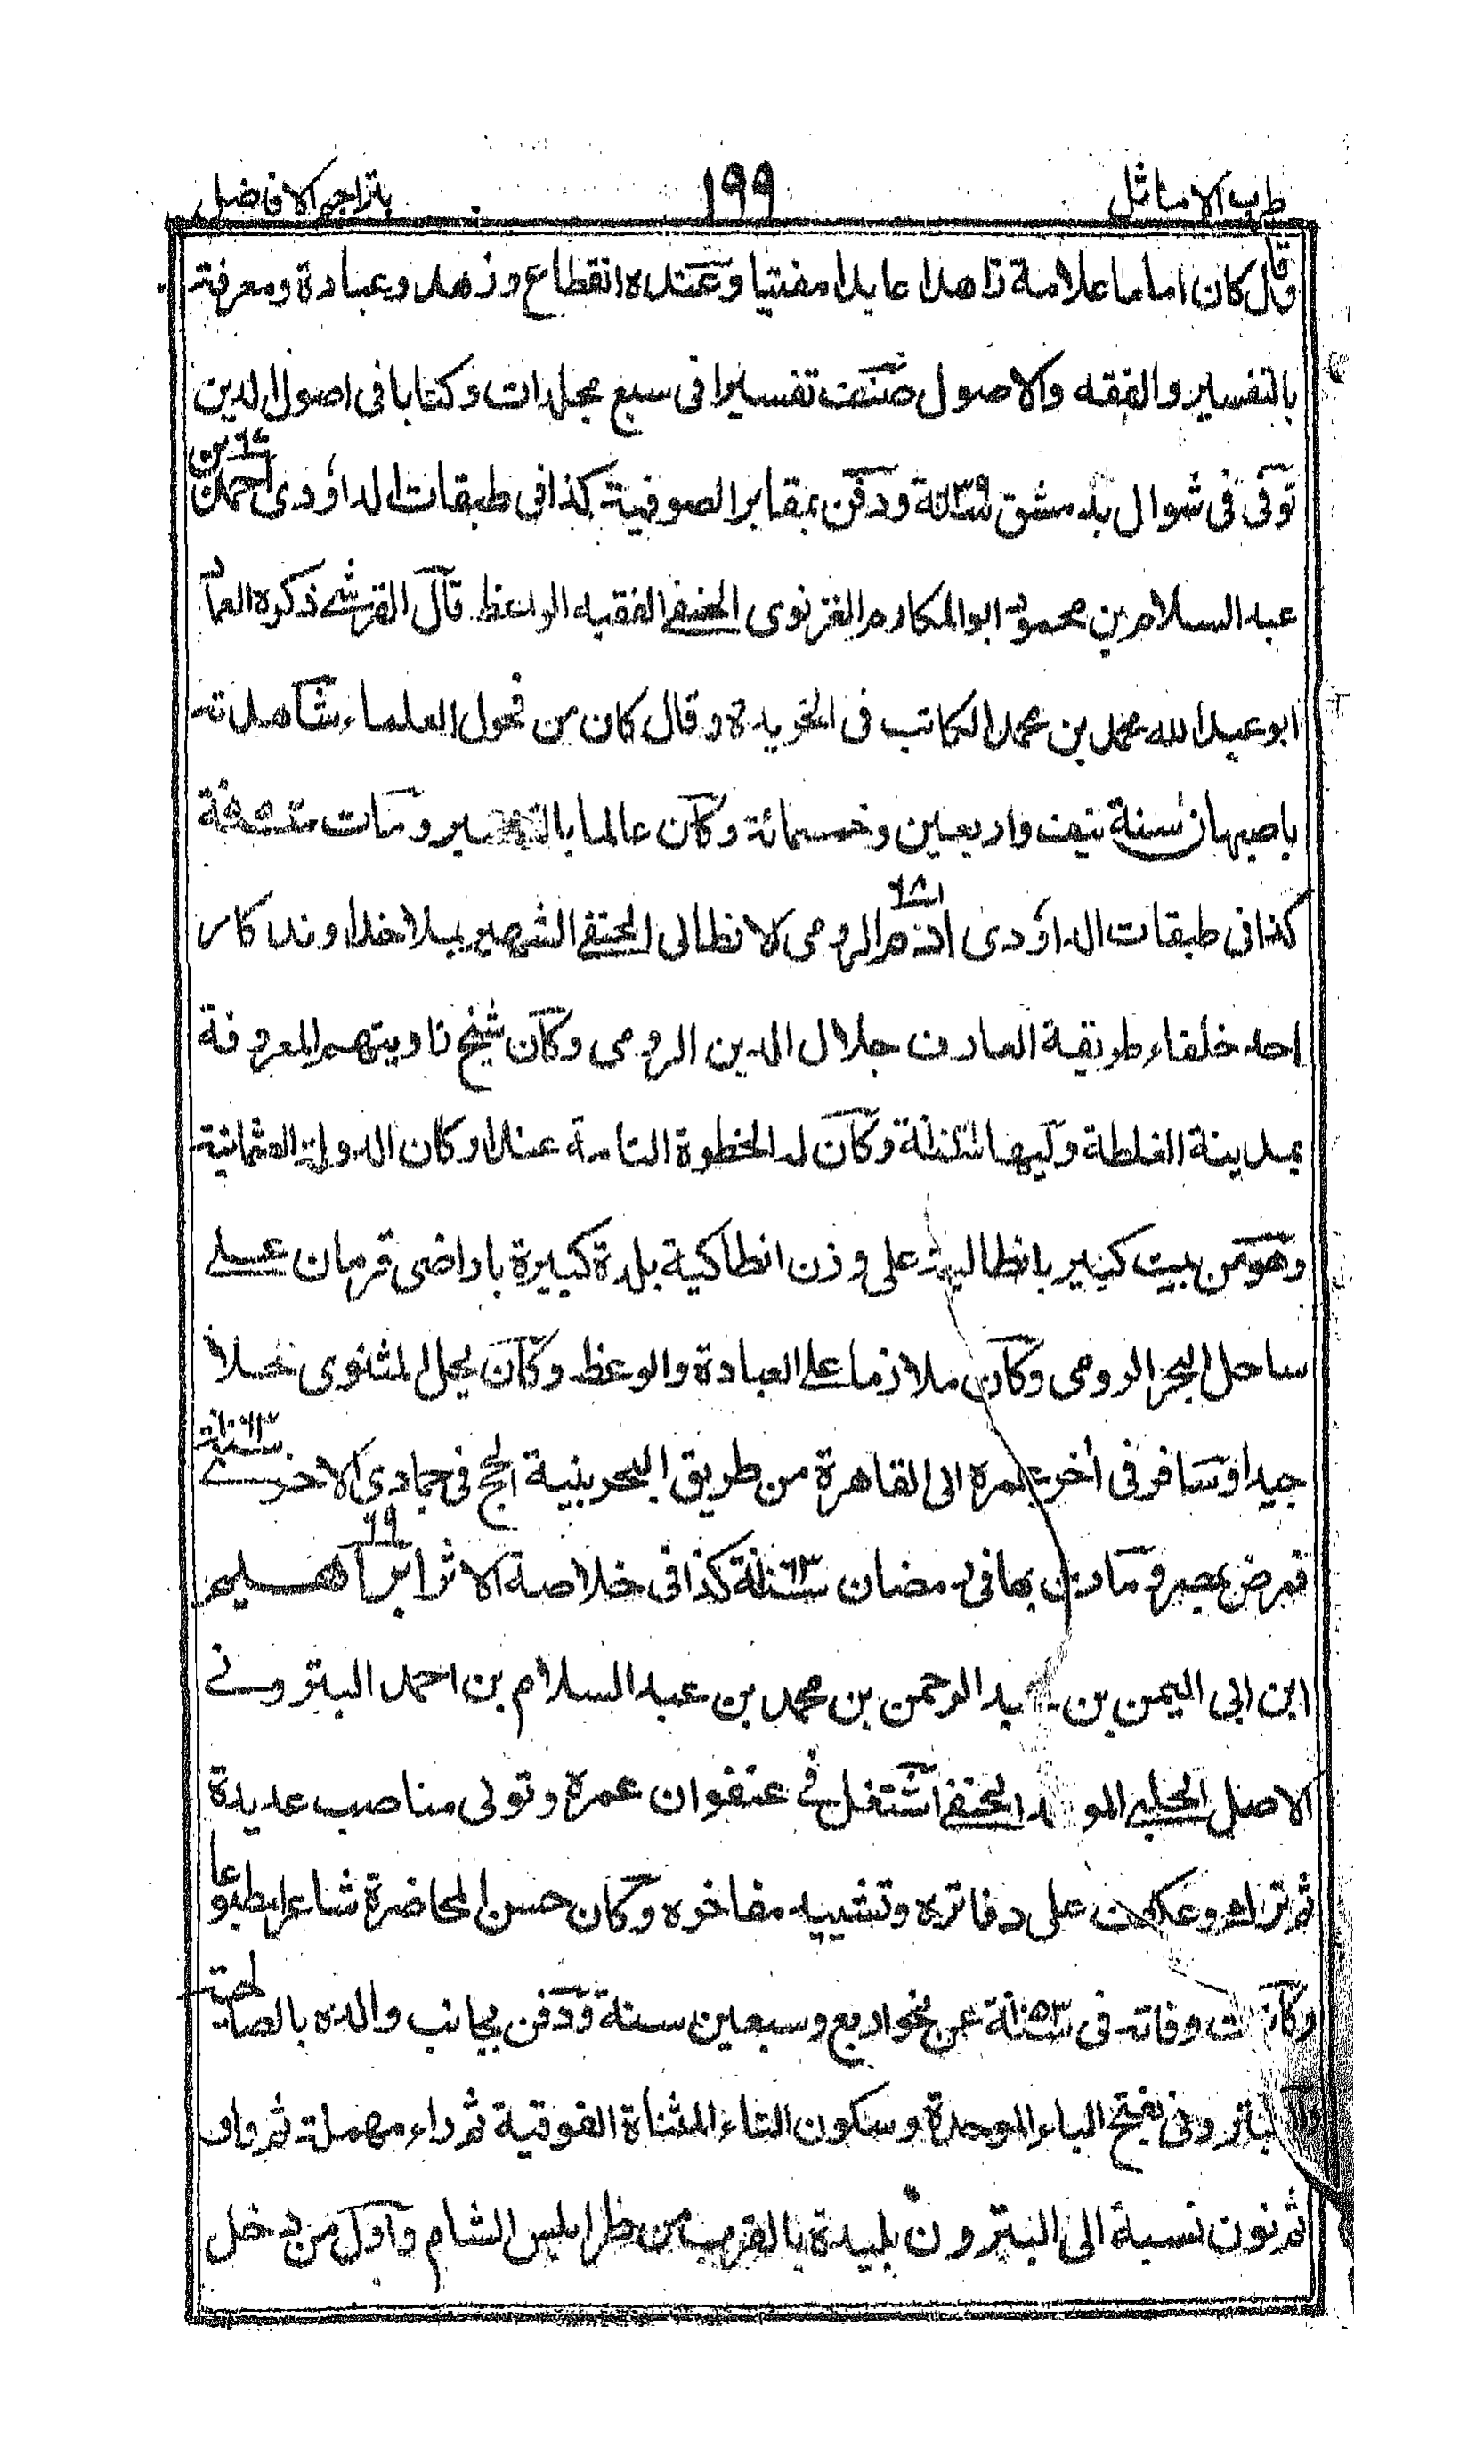 طرب الاماثل ١٩٩ بتراجم الافاضل
قال كان اماما علامة زاهدا عابدا مفتيا وعنده انقطاع وزهد وعبادة ومعرفة
بالتفسير والفقه والاصول صنف تفسيرا فى سبع مجلدات وكتابا فى اصول الدين
توفى فى شوال بدمشق ودفن بمقابر الصوفية كذا فى طبقات الداؤدى احمد بن
عبد السلام بن محمود ابو المكارم الغزنوى الحنفى الفقيه الواعظ قال القرشى ذكره العماد
ابو عبد الله محمد بن محمد الكاتب فى الخريدة وقال كان من فحول العلماء شاهدته
باصبهان سنة نيف واربعين وخمسمائة وكان عالما بالتفسير ومات
كذا فى طبقات الداؤدى ادم الرومى الانطالى الحنفى الشهير بملا خداوندكار
احد خلفاء طريقة العارف جلال الدين الرومى وكان شيخ زاويتهم المعروفة
بمدينة الغلطة وكان له الحظوة التامة عند اركان الدولة العثمانية
وهو من بيت كبير بانطالية على وزن انطاكية بلدة كبيرة باراضى قرمان على
ساحل البحر الرومى وكان ملازما على العبادة والوعظ وكان يحل المثنوى حلا
جيدا وسافر فى اخر عمره الى القاهرة من طريق البحر بنية الحج فى جمادى الاخرى سنة ١٠٦٣
فمرض بمصر ومات بها فى رمضان سنة ١٠٦٣ كذا فى خلاصة الاثر ٦٩ ابراهيم
ابن ابى اليمن بن عبد الرحمن بن محمد بن عبد السلام بن احمد البترونى
الاصل الحلبى المولد الحنفى اشتغل فى عنفوان عمره وتولى مناصب عديدة
ثم ترك وعكف على دفاتره وتشييد مفاخره وكان حسن المحاضرة شاعرا مطبوعا
وكانت وفاته فى سنة ١٠٥٣ عن نحو اربع وسبعين سنة ودفن بجانب والده بالصالحية
البترونى بفتح الباء الموحدة وسكون التاء المثناة الفوقية ثم راء مهملة ثم واو
ثم نون نسبة الى البترون بليدة بالقرب من طرابلس الشام واول من دخل